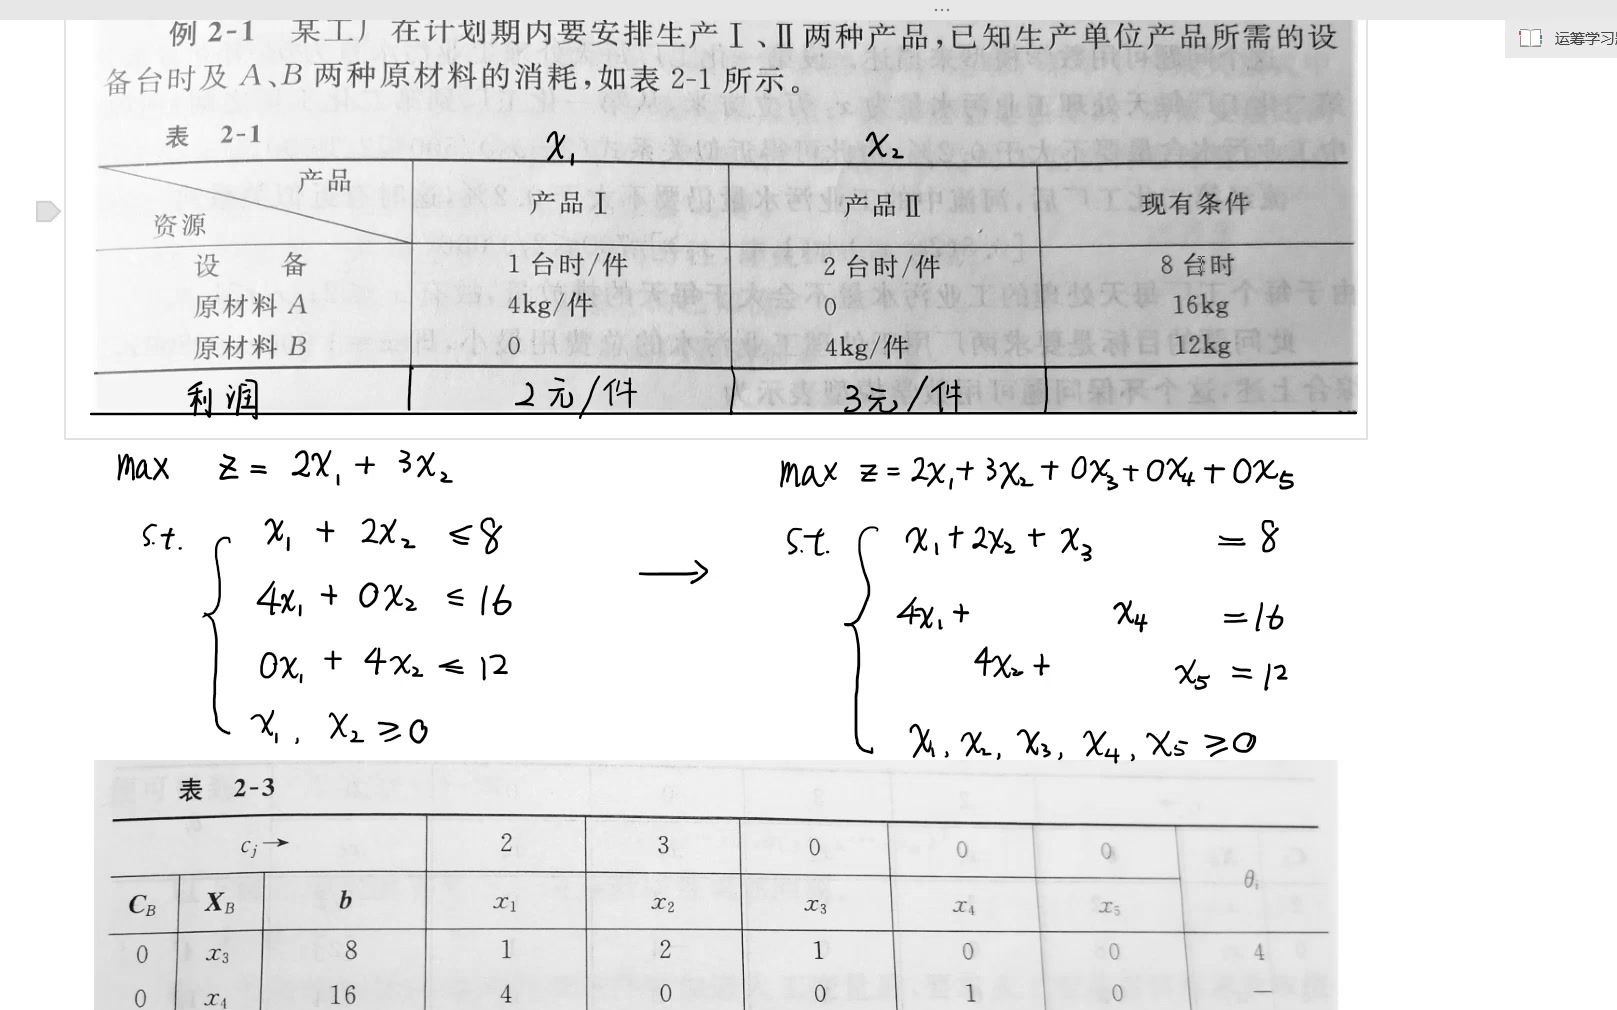 运筹学习题
例 2-1 某工厂在计划期内要安排生产Ⅰ、Ⅱ两种产品,已知生产单位产品所需的设
备台时及 A、B 两种原材料的消耗,如表 2-1 所示。
表 2-1
x₁ x₂
产品
资源 产品Ⅰ 产品Ⅱ 现有条件
设 备 1 台时/件 2 台时/件 8 台时
原材料 A 4kg/件 0 16kg
原材料 B 0 4kg/件 12kg
利润 2元/件 3元/件
max z = 2x₁ + 3x₂
s.t.
x₁ + 2x₂ ≤ 8
4x₁ + 0x₂ ≤ 16
0x₁ + 4x₂ ≤ 12
x₁, x₂ ≥ 0
→
max z = 2x₁ + 3x₂ + 0x₃ + 0x₄ + 0x₅
s.t.
x₁ + 2x₂ + x₃ = 8
4x₁ + x₄ = 16
4x₂ + x₅ = 12
x₁, x₂, x₃, x₄, x₅ ≥ 0
表 2-3
cⱼ→ 2 3 0 0 0 θᵢ
C_B X_B b x₁ x₂ x₃ x₄ x₅
0 x₃ 8 1 2 1 0 0 4
0 x₄ 16 4 0 0 1 0 —